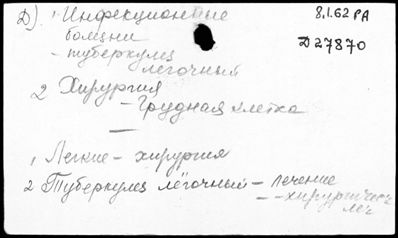 Д) 1 Инфекционные 8.I.62 РА
болезни
Д27870
- туберкулез
легочный
2 Хирургия
- Грудная клетка
1 Легкие - хирургия
2 Туберкулез лёгочный - лечение
- - хирургическ
леч